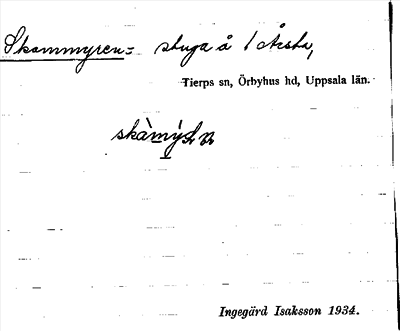 Skammyren = stuga å 1 Årsta,
Tierps sn, Örbyhus hd, Uppsala län.
Ingegärd Isaksson 1934.